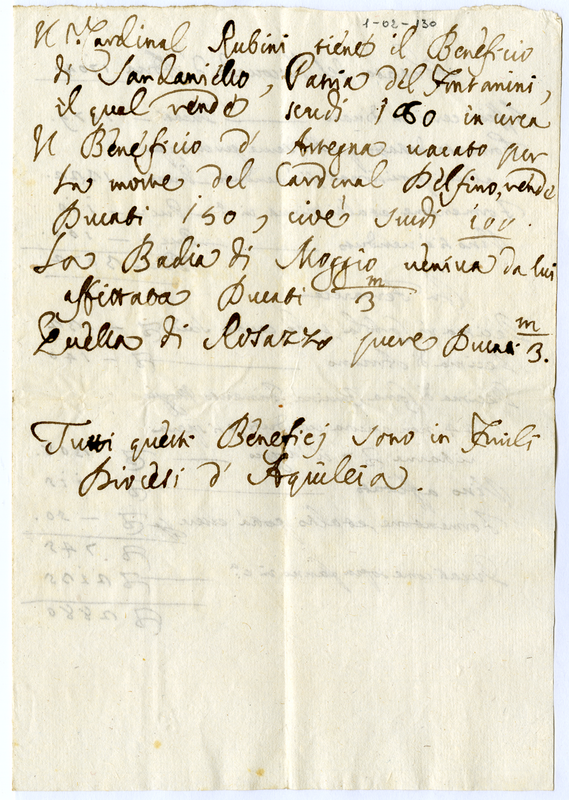 1-02-130
Il Cardinal Rubini tiene il Beneficio
di Sandaniello, Patria del Fontanini,
il qual rende scudi 180 in circa
Il Beneficio d' Artegna vacato per
la morte del Cardinal Delfino, rende
Ducati 150, cioè scudi 100.
La Badia di Moggio veniva da lui
affittata Ducati m/3
Quella di Rosazzo pure Ducati m/3.
Tutti questi Beneficj sono in Friuli
Diocesi d' Aquileia.